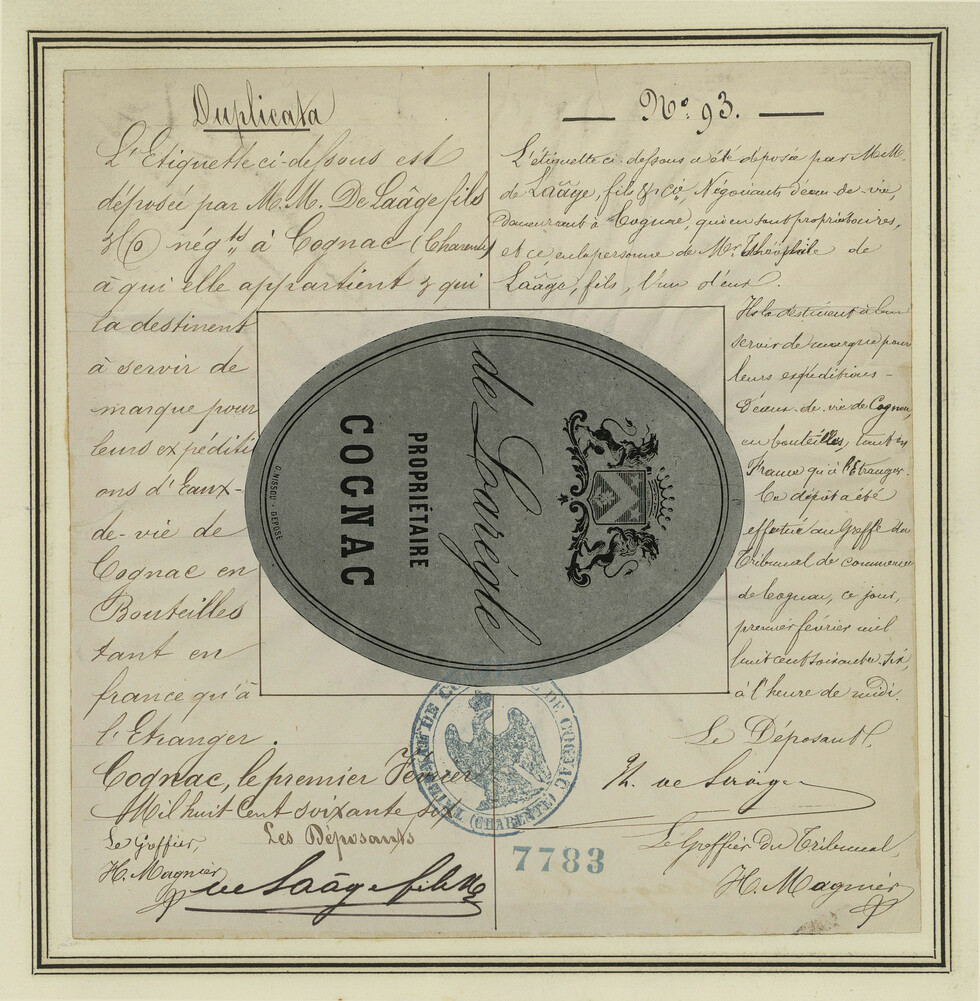 Duplicata
L'Etiquette ci-dessous est
déposée par M.M. De Laâge fils
& Co négts à Cognac (Charente)
à qui elle appartient & qui
la destinent
à servir de
marque pour
leurs expéditi
ons d'Eaux-
de-vie de
Cognac en
Bouteilles
tant en
france qu'à
l'Etranger.
Cognac, le premier Février
Mil huit Cent soixante six
Le Greffier,
H. Magnier
Les Déposants
de Laâge fils & Co
No. 93.
L'étiquette ci-dessous a été déposée par M.M.
de Laâge, fils & Cie, Négociants d'eau-de-vie,
demeurant à Cognac, qui en sont propriétaires,
et ce, en la personne de Mr. Théophile de
Laâge, fils, l'un d'eux.
Ils la destinent à leur
servir de marque pour
leurs expéditions
d'eaux-de-vie de Cognac,
en bouteilles, tant en
France qu'à l'Etranger.
Ce dépôt a été
effectué au Greffe du
Tribunal de commerce
de Cognac, ce jour,
premier février mil
huit cent soixante-six,
à l'heure de midi.
Le Déposant,
Le Greffier du Tribunal,
H. Magnier
de Lorégle
PROPRIÉTAIRE
COGNAC
DÉPOSÉ
DE COGNAC
(CHARENTE)
7783